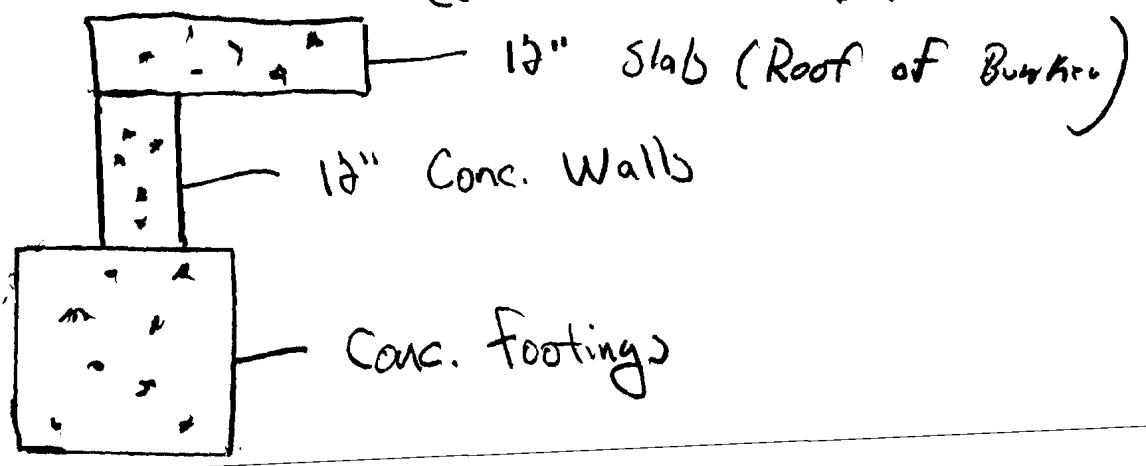 12" Slab (Roof of Bunker)
12" Conc. Walls
Conc. Footings